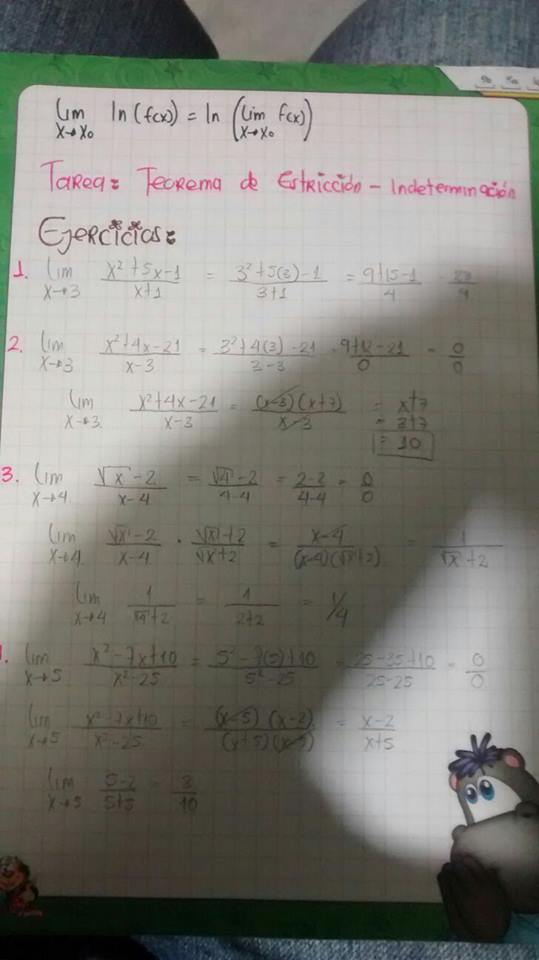 lim x→x₀ ln(f(x)) = ln(lim x→x₀ f(x))
Tarea: Teorema de Estricción - Indeterminación
Ejercicios:
1. lim x→3 (x²+5x-1)/(x+1) = (3²+5(3)-1)/(3+1) = (9+15-1)/4 = 23/4
2. lim x→3 (x²+4x-21)/(x-3) = (3²+4(3)-21)/(3-3) = (9+12-21)/0 = 0/0
lim x→3 (x²+4x-21)/(x-3) = (x-3)(x+7)/(x-3) = x+7
= 3+7
= 10
3. lim x→4 (√x-2)/(x-4) = (√4-2)/(4-4) = (2-2)/(4-4) = 0/0
lim x→4 (√x-2)/(x-4) · (√x+2)/(√x+2) = (x-4)/((x-4)(√x+2)) = 1/(√x+2)
lim x→4 1/(√4+2) = 1/(2+2) = 1/4
lim x→5 (x²-7x+10)/(x²-25) = (5²-7(5)+10)/(5²-25) = (25-35+10)/(25-25) = 0/0
lim x→5 (x²-7x+10)/(x²-25) = (x-5)(x-2)/((x+5)(x-5)) = (x-2)/(x+5)
lim x→5 (5-2)/(5+5) = 3/10